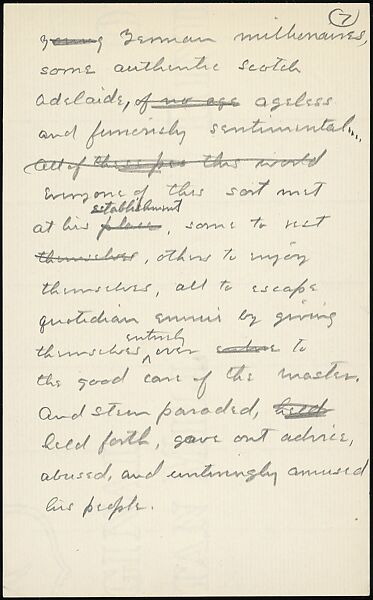 7
young German millionaires,
some authentic scotch
Adelaide, of no age ageless
and fiercely sentimental...
All of this world
Everyone of this sort met
establishment
at his place, some to rest
themselves, others to enjoy
themselves, all to escape
quotidian ennui by giving
entirely
themselves over to
the good care of the master.
And stein paraded, held
held forth, gave out advice,
abused, and untiringly amused
his people.